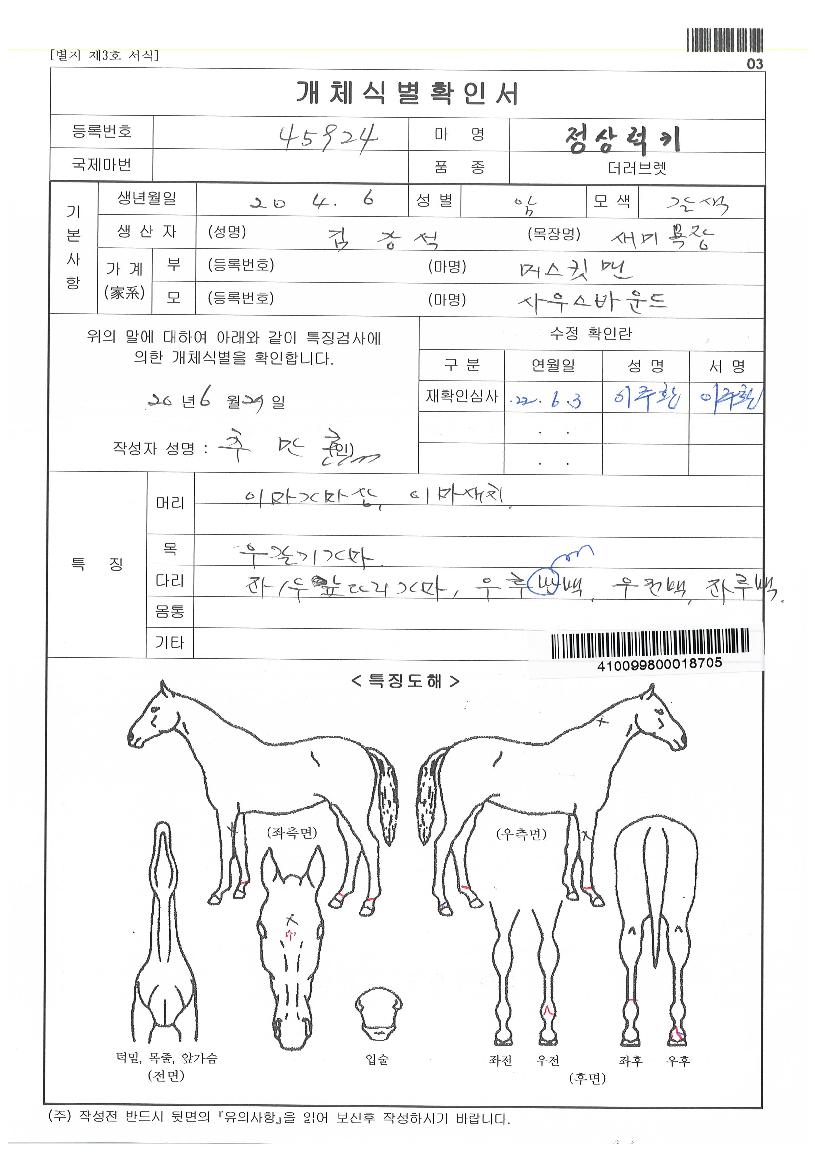 [별지 제3호 서식]
03
개체식별확인서
등록번호 45924 마 명 정상럭키
국제마번 품 종 더러브렛
기본사항
생년월일 20 4. 6 성별 암 모색 갈색
생산자 (성명) 김 강석 (목장명) 새미목장
가계 (家系) 부 (등록번호) (마명) 머스킷맨
모 (등록번호) (마명) 사우스바운드
위의 말에 대하여 아래와 같이 특징검사에
의한 개체식별을 확인합니다.
20 년 6 월 29 일
작성자 성명 : (인)
수정 확인란
구분 연월일 성명 서명
재확인심사 22. 6. 3 이주환 이주환
. .
. .
특 징
머리 이마가마상, 이마새치
목 우갈기가마
다리 좌/우앞다리가마, 우후백, 우전백, 좌후백.
몸통
기타
410099800018705
< 특징도해 >
(좌측면)
(우측면)
턱밑, 목줄, 앞가슴
(전면)
입술
좌전 우전
좌후 우후
(후면)
(주) 작성전 반드시 뒷면의 『유의사항』을 읽어 보신후 작성하시기 바랍니다.